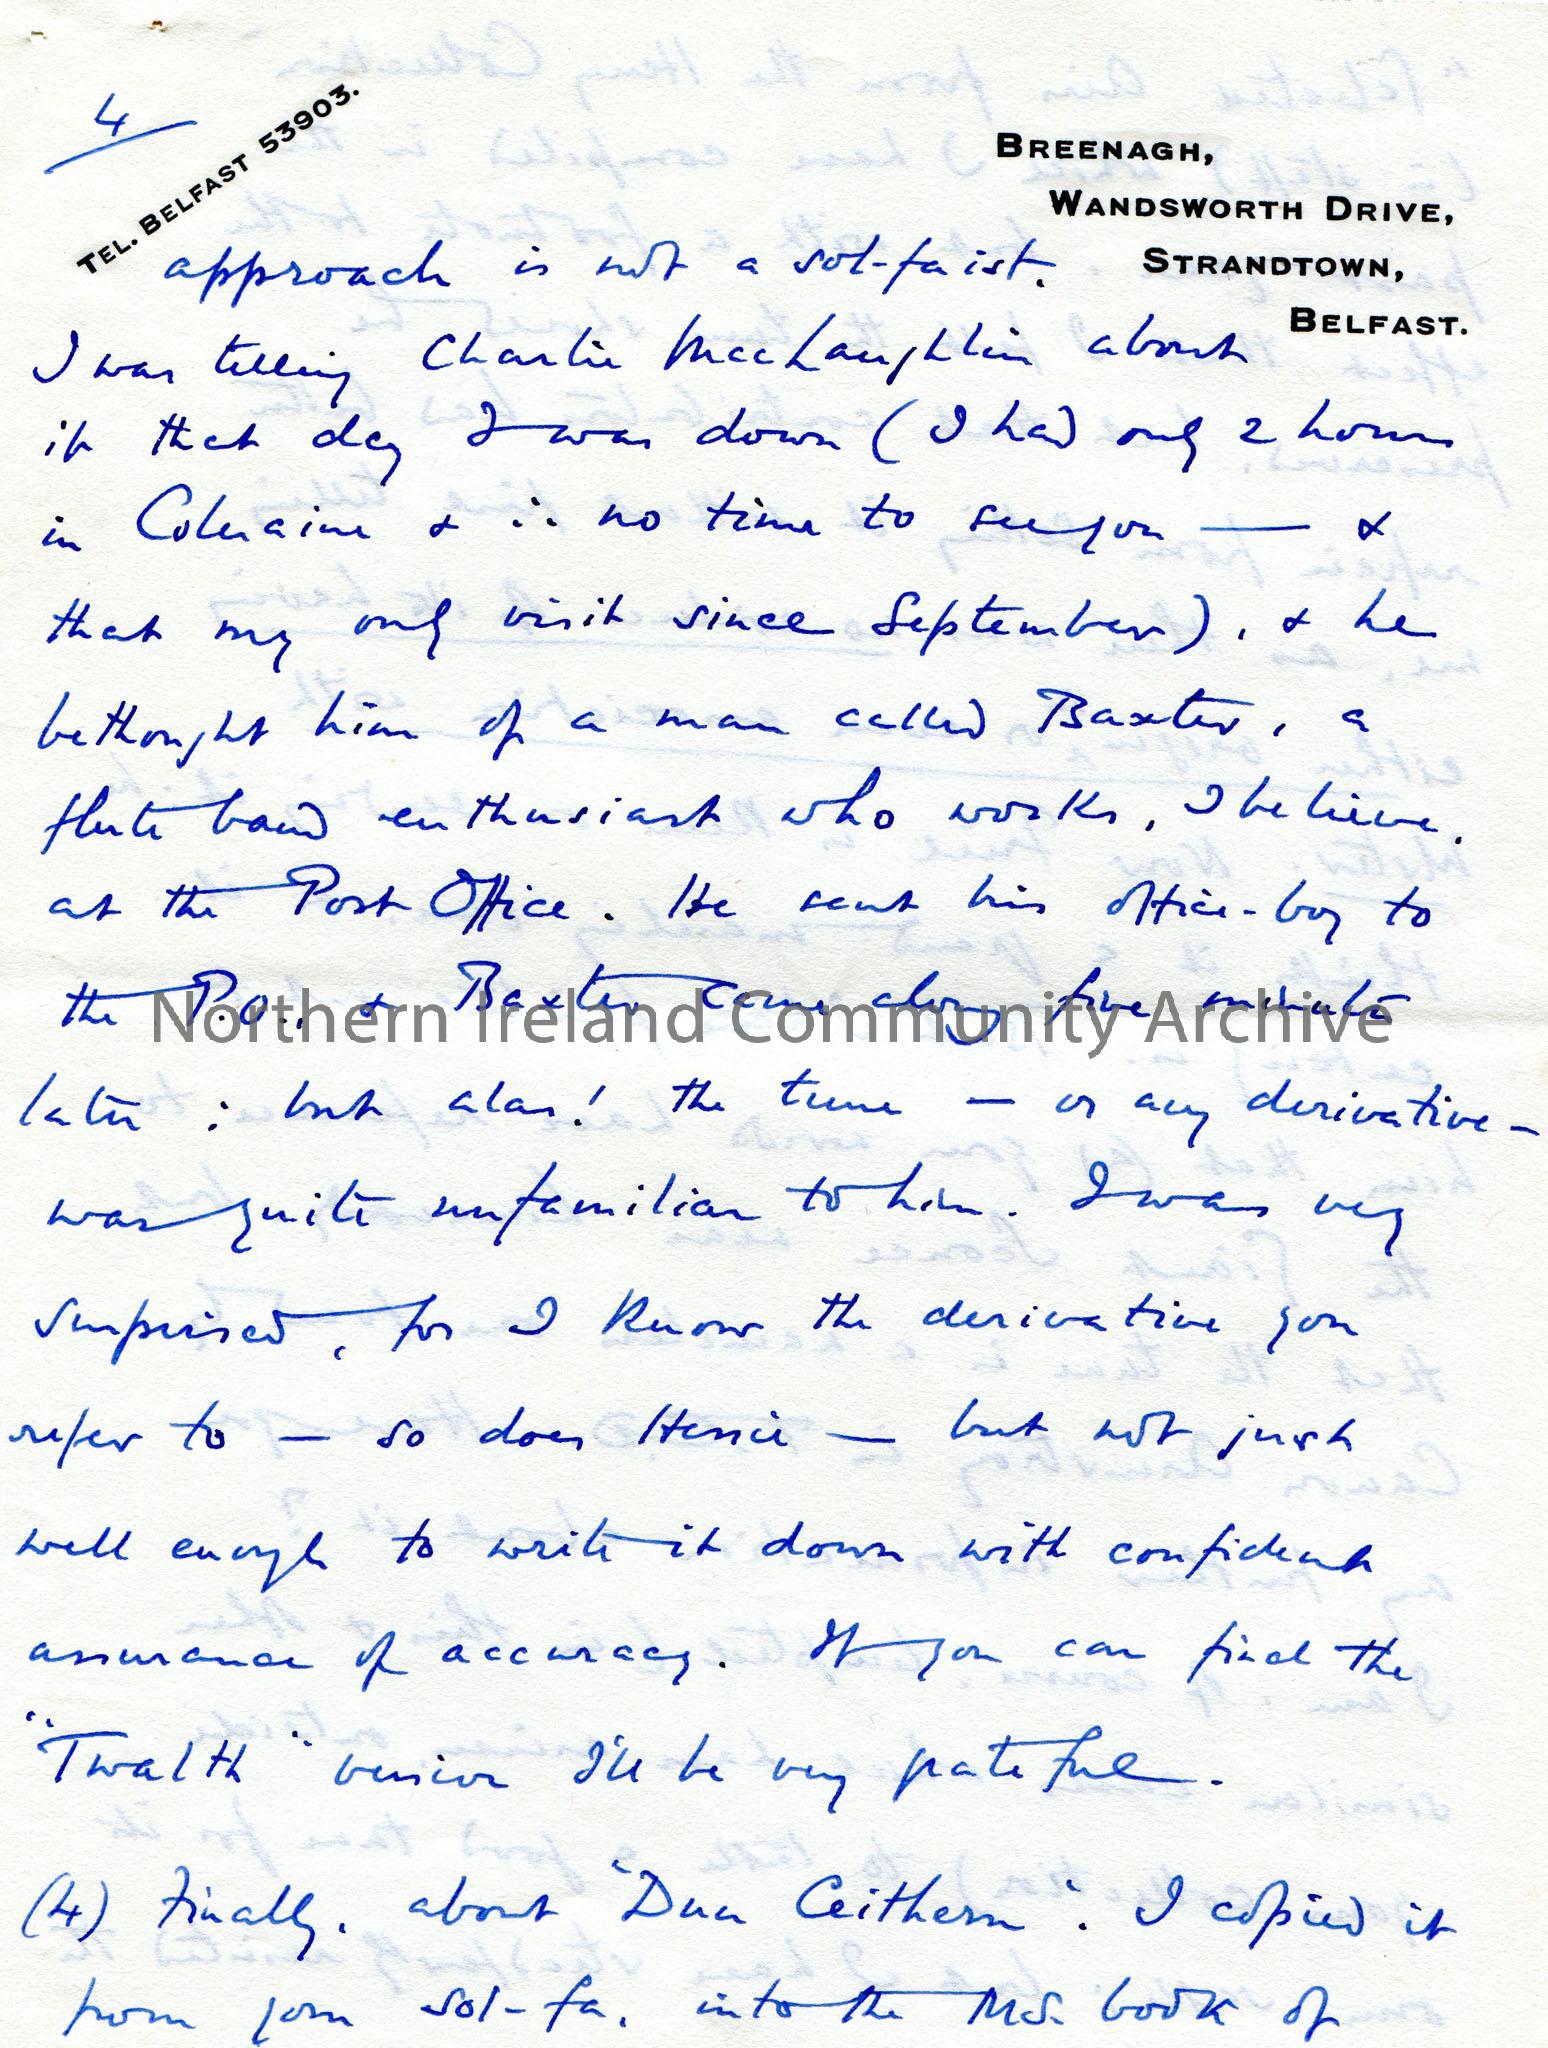 4
TEL. BELFAST 53903.
BREENAGH,
WANDSWORTH DRIVE,
STRANDTOWN,
BELFAST.
approach is not a sol-faist.
I was telling Charlie MacLaughlin about
it that day I was down (I had only 2 hours
in Coleraine & ∴ no time to see you — &
that my only visit since September), & he
bethought him of a man called Baxter, a
flute band enthusiast who works, I believe,
at the Post Office. He sent his office-boy to
the P.O., & Baxter came along five minutes
Northern Ireland Community Archive
later; but alas! the tune — or any derivative —
was quite unfamiliar to him. I was very
surprised, for I know the derivative you
refer to — so does Hessie — but not just
well enough to write it down with confident
assurance of accuracy. If you can find the
"Twalth" version I'll be very grateful.
(4) Finally, about "Dun Ceithern". I copied it
from your sol-fa, into the MS. book of